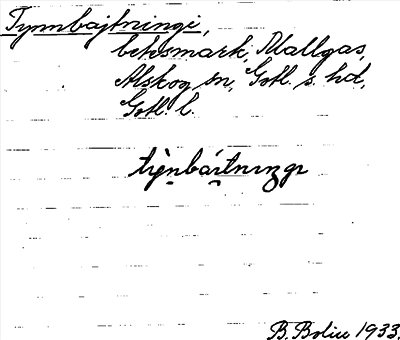 Tynnbajtningi,
betesmark, Mallgas,
Alskog sn, Gotl. s. hd,
Gotl. l.
B. Bolin 1933.